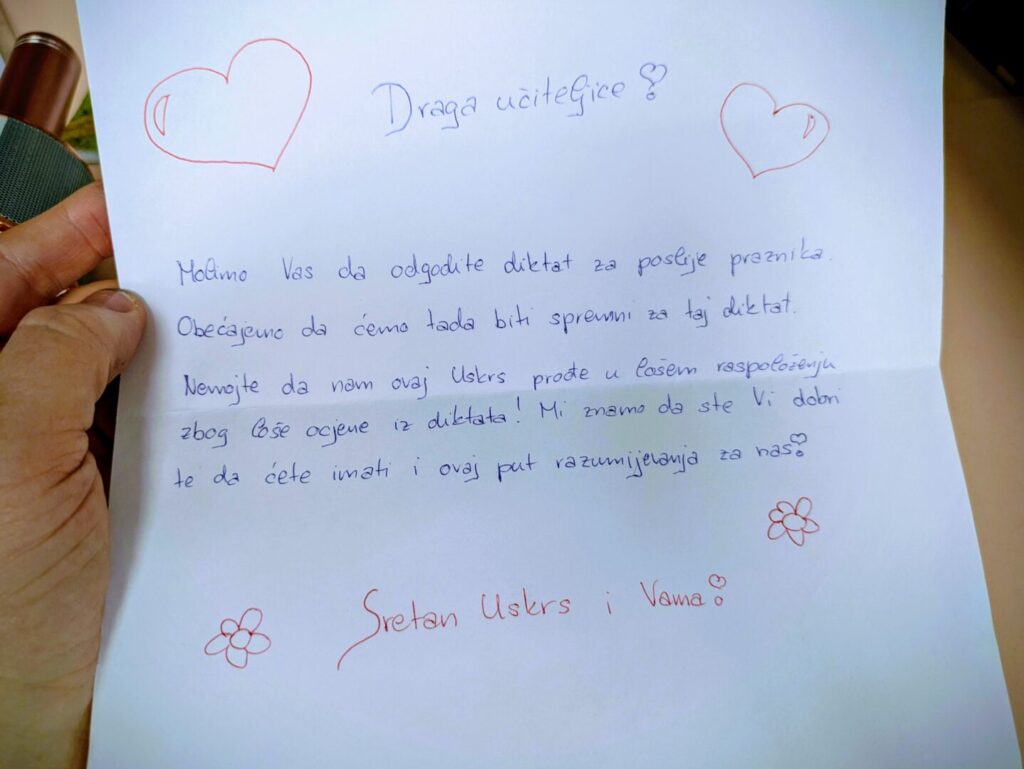 Draga učiteljice!
Molimo Vas da odgodite diktat za poslije praznika.
Obećajemo da ćemo tada biti spremni za taj diktat.
Nemojte da nam ovaj Uskrs prođe u lošem raspoloženju
zbog loše ocjene iz diktata! Mi znamo da ste Vi dobri
te da ćete imati i ovaj put razumijevanja za nas!
Sretan Uskrs i Vama!